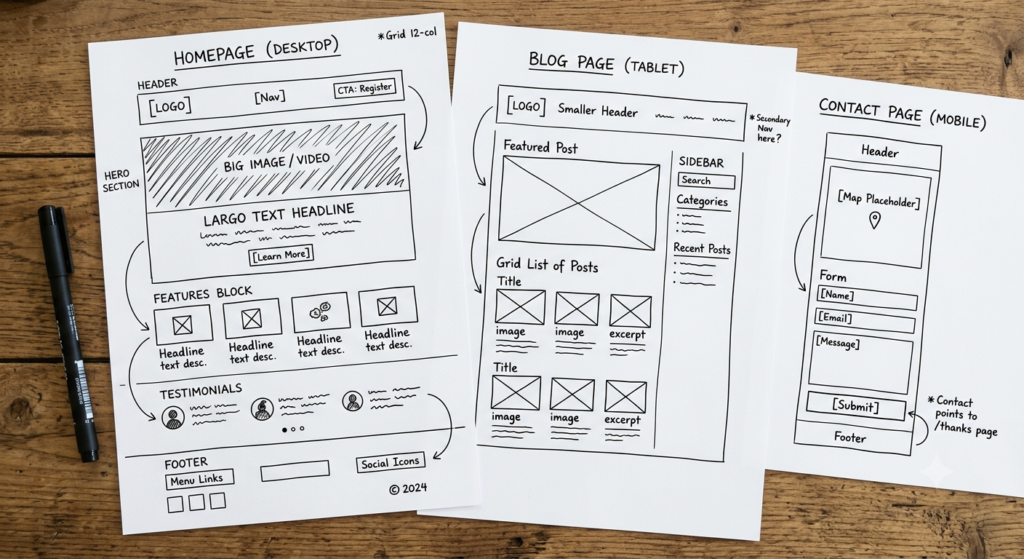 HOMEPAGE (DESKTOP)
*Grid 12-col
HEADER
[LOGO]
[Nav]
CTA: Register
HERO
SECTION
BIG IMAGE/VIDEO
LARGO TEXT HEADLINE
[Learn More]
FEATURES BLOCK
Headline
text desc.
Headline
text desc.
Headline
text desc.
Headline
text desc.
TESTIMONIALS
FOOTER
Menu Links
Social Icons
© 2024
BLOG PAGE (TABLET)
[LOGO]
Smaller Header
*Secondary
Nav
here?
Featured Post
SIDEBAR
Search
Categories
Recent Posts
Grid List of Posts
Title
image
image
excerpt
Title
image
image
excerpt
CONTACT PAGE (MOBILE)
Header
[Map Placeholder]
Form
[Name]
[Email]
[Message]
[Submit]
Footer
*Contact
points to
/thanks page